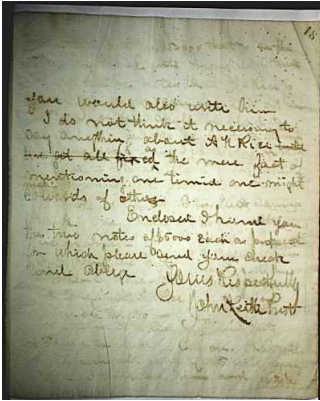 18
you would also with him
I do not think it necessary to
say anything about A H Rice
at all the mere fact of
mentioning one timid one might
make cowards of others
Enclosed I hand you
the two notes of 5000 each as proposed
for which please send your check
and oblige
Yours Respectfully
John Keith